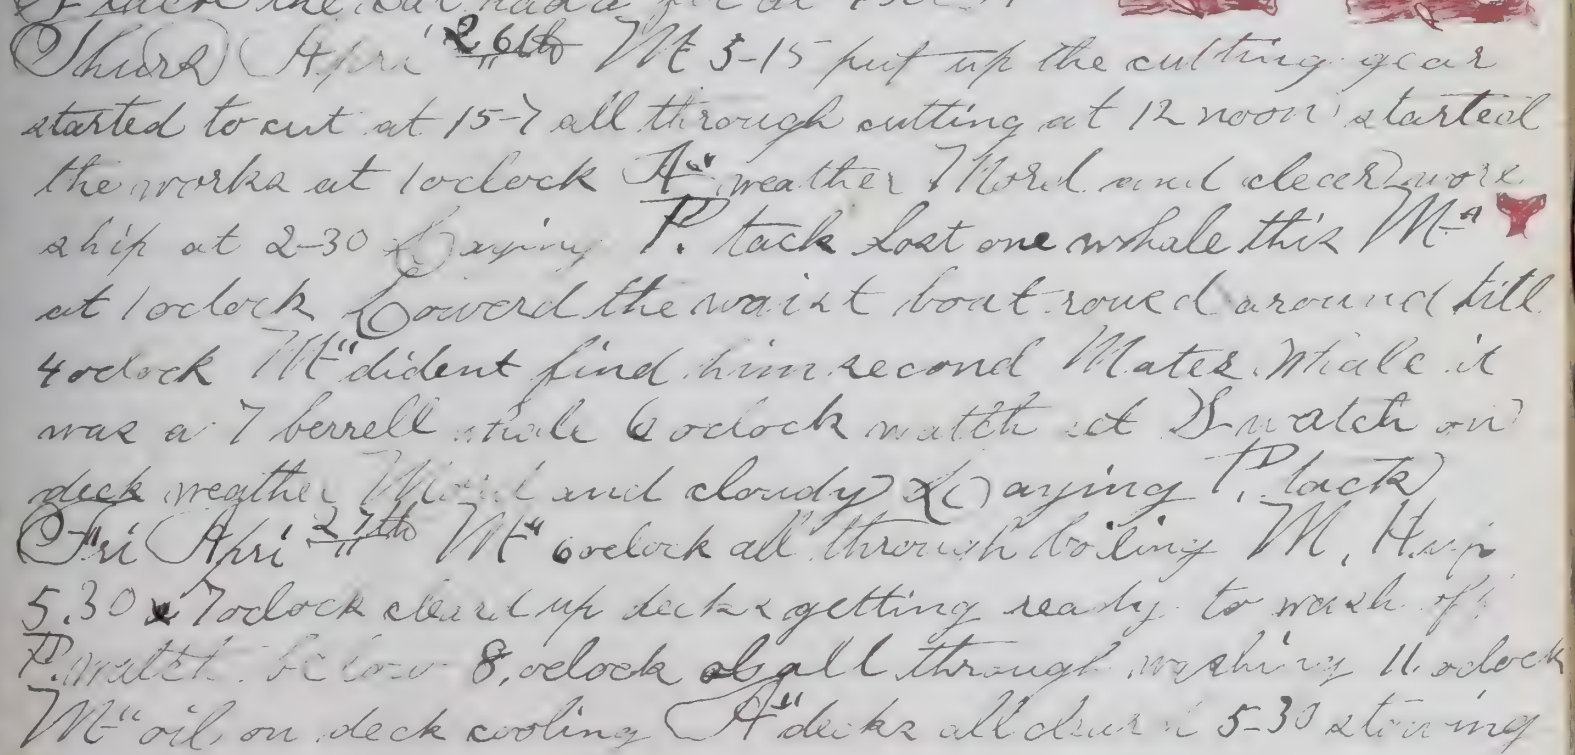 tack the
Thurs Apri 26th Mt 5-15 put up the cutting gear
started to cut at 15-7 all through cutting at 12 noon started
the works at 1 oclock A" weather Mord and clear wore
ship at 2-30 Laying P. tack lost one whale this M"
at 1 oclock Lowerd the waist boat roued around till
4 oclock M" dident find him second Mates Whale it
was a 7 berrell whale 6 oclock watch set S watch on
deck weather and cloudy Laying P. tack
Fri Apri 27th M" 6 oclock all through boiling M, H up
5.30 7 oclock cleard up decks getting ready to wash off
P. watch below 8, oclock all through washing 11. oclock
M" oil on deck cooling A" decks all 5-30 stowing